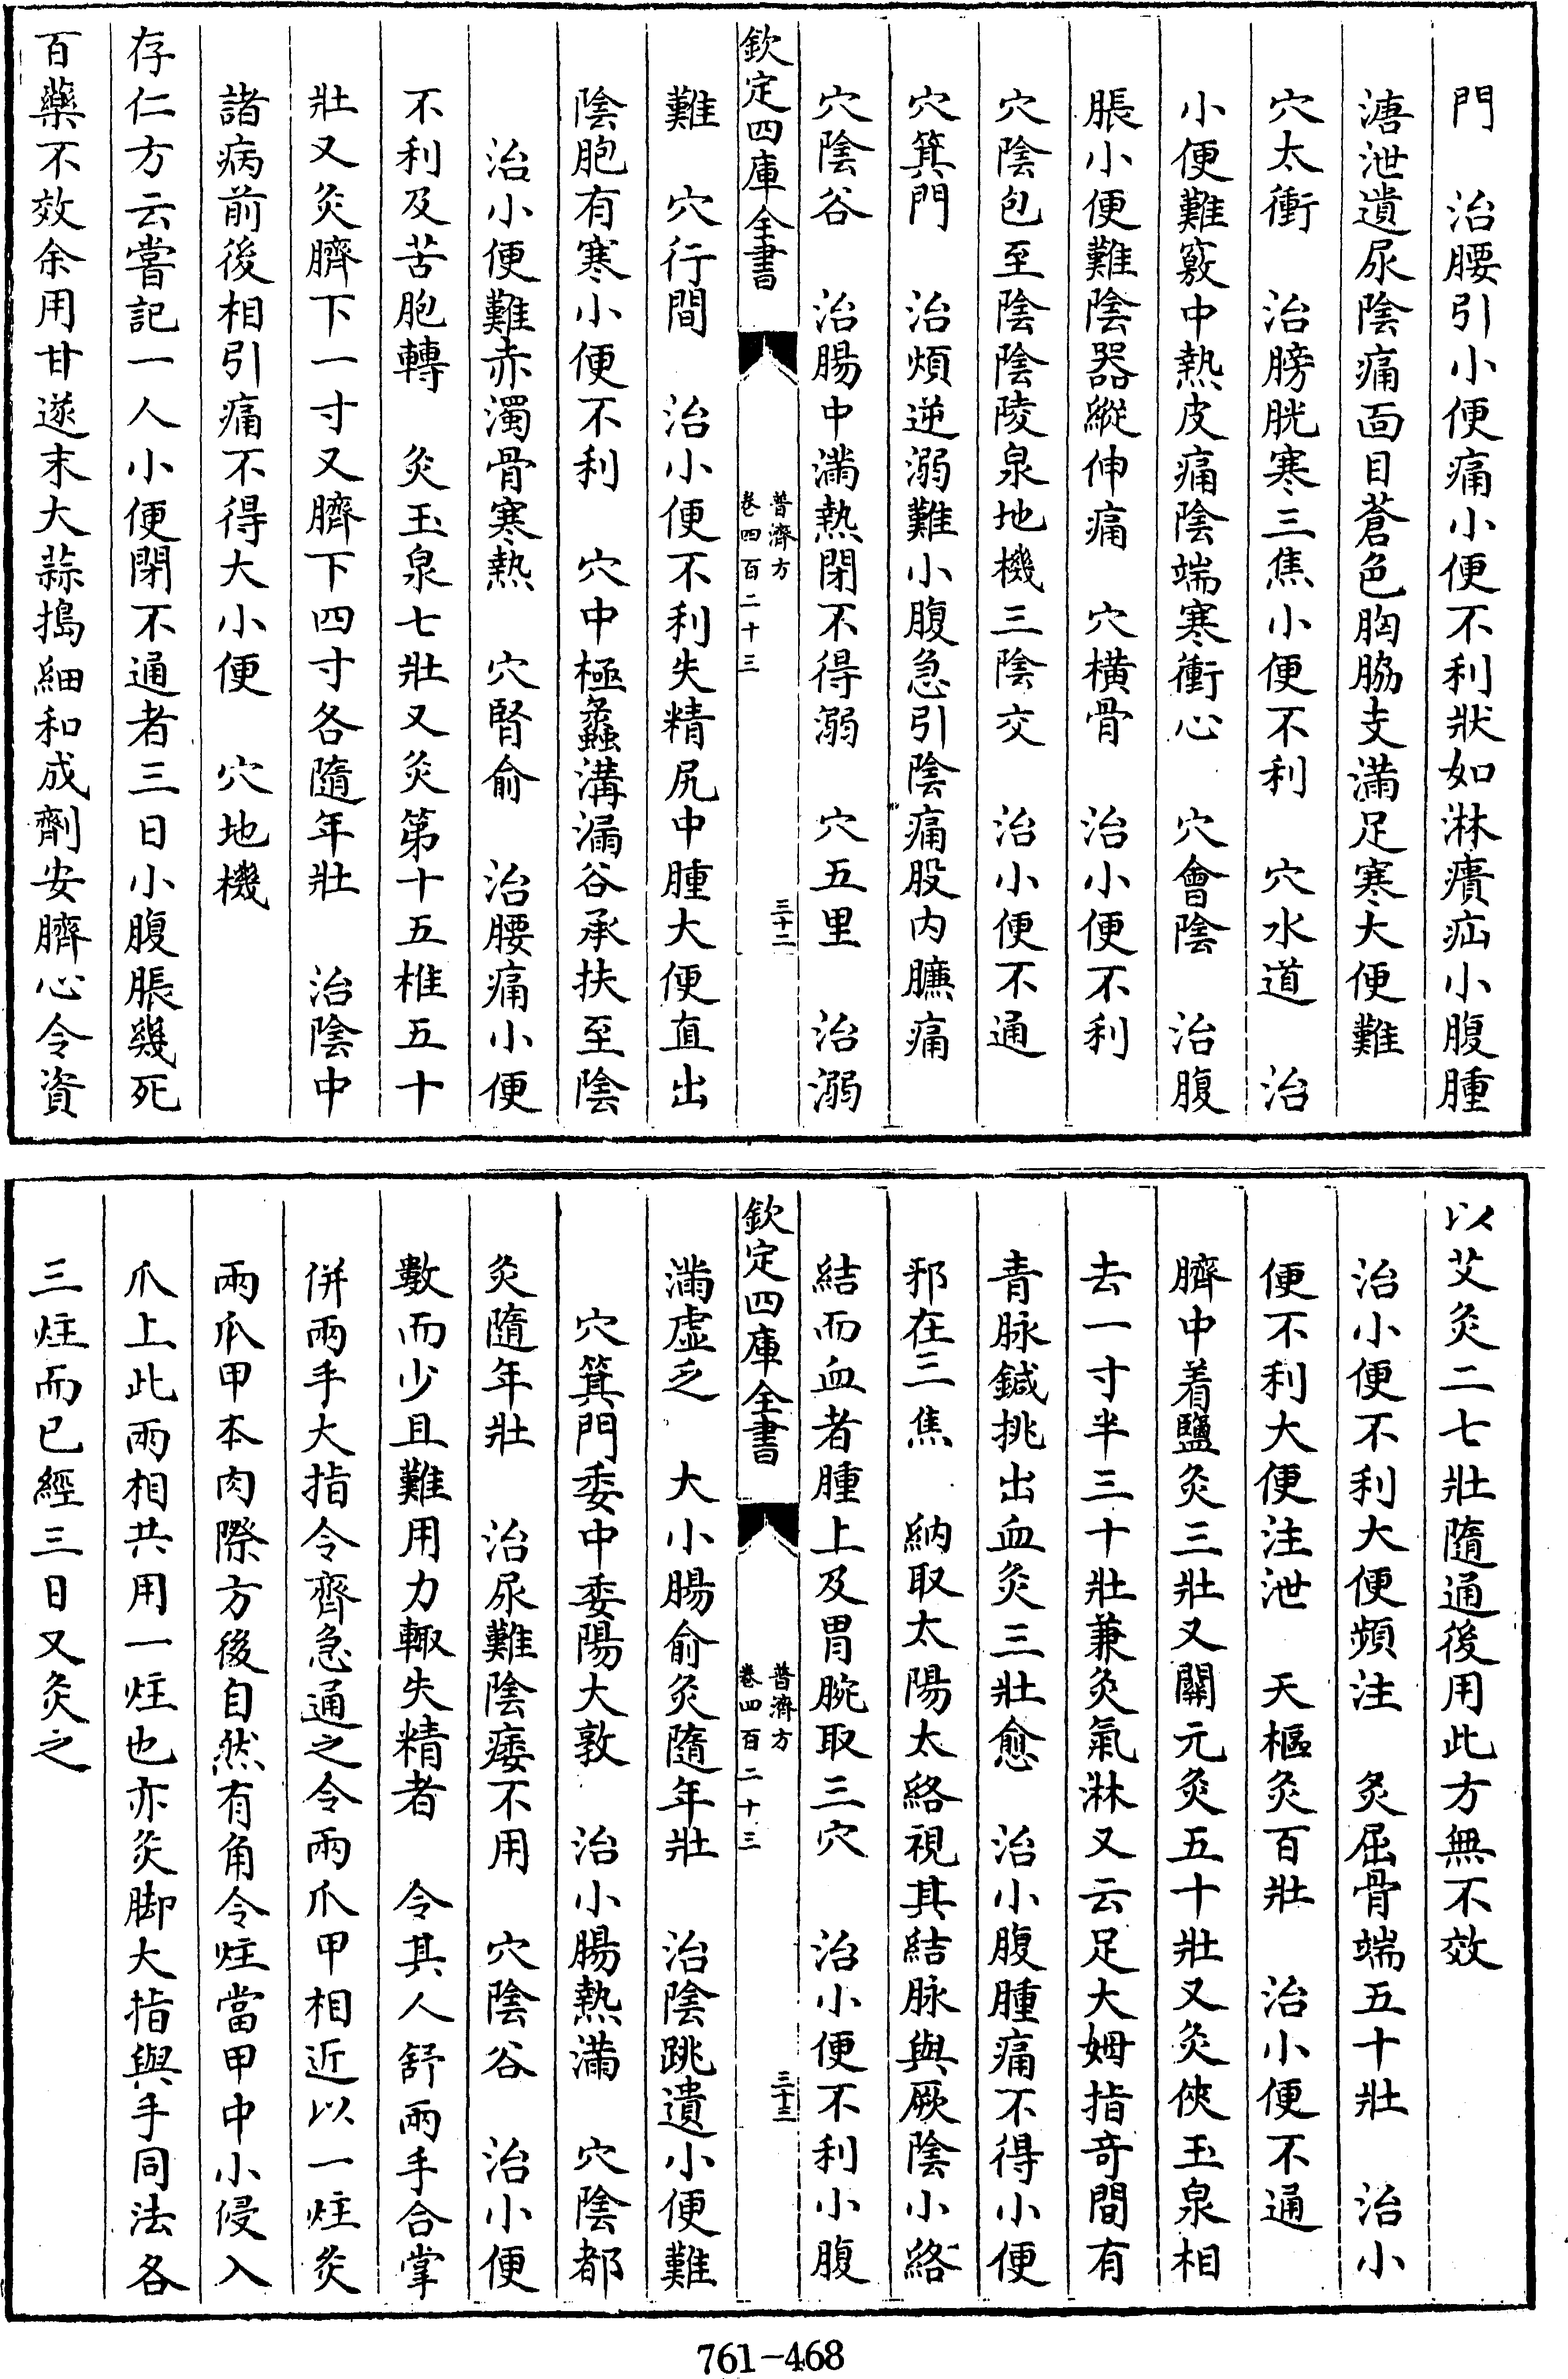 門　治腰引小便痛小便不利狀如淋㿉疝小腹腫
溏泄遺尿陰痛面目蒼色胸脇支滿足寒大便難
穴太衝　治膀胱寒三焦小便不利　穴水道　治
小便難竅中熱皮痛陰端寒衝心　穴會陰　治腹
脹小便難陰器縱伸痛　穴橫骨　治小便不利
穴陰包至陰陰陵泉地機三陰交　治小便不通
穴箕門　治煩逆溺難小腹急引陰痛股内臁痛
穴陰谷　治腸中滿熱閉不得溺　穴五里　治溺
欽定四庫全書
普濟方
卷四百二十三
三十二
難　穴行間　治小便不利失精尻中腫大便直出
陰胞有寒小便不利　穴中極蠡溝漏谷承扶至陰
治小便難赤濁骨寒熱　穴腎俞　治腰痛小便
不利及苦胞轉　灸玉泉七壯又灸第十五椎五十
壯又灸臍下一寸又臍下四寸各隨年壯　治陰中
諸病前後相引痛不得大小便　穴地機
存仁方云嘗記一人小便閉不通者三日小腹脹幾死
百藥不效余用甘遂末大蒜搗細和成劑安臍心令資
以艾灸二七壯隨通後用此方無不效
治小便不利大便頻注　灸屈骨端五十壯　治小
便不利大便注泄　天樞灸百壯　治小便不通
臍中着鹽灸三壯又關元灸五十壯又灸俠玉泉相
去一寸半三十壯兼灸氣淋又云足大姆指奇間有
青脉鍼挑出血灸三壯愈　治小腹腫痛不得小便
邪在三焦　納取太陽太絡視其結脉與厥陰小絡
結而血者腫上及胃脘取三穴　治小便不利小腹
欽定四庫全書
普濟方
卷四百二十三
三十三
滿虛乏　大小腸俞灸隨年壯　治陰跳遺小便難
穴箕門委中委陽大敦　治小腸熱滿　穴陰都
灸隨年壯　治尿難陰痿不用　穴陰谷　治小便
數而少且難用力輙失精者　令其人舒兩手合掌
併兩手大指令齊急通之令兩爪甲相近以一炷灸
兩爪甲本肉際方後自然有角令炷當甲中小侵入
爪上此兩相共用一炷也亦灸脚大指與手同法各
三炷而已經三日又灸之
761-468